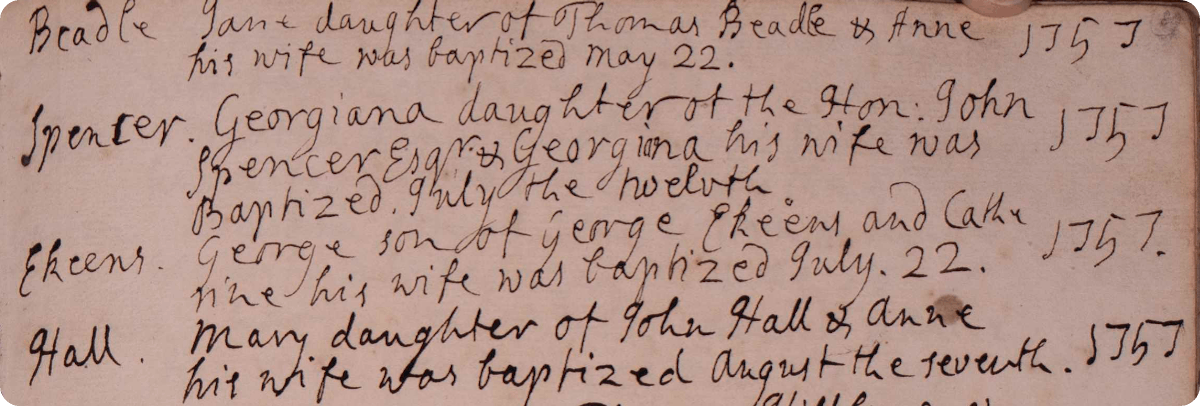 Beadle Jane daughter of Thomas Beadle & Anne 1757
his wife was baptized may 22.
Spencer. Georgiana daughter of the Hon: John 1757
Spencer Esqr. & Georgiana his wife was
Baptized. July the twelvth.
Ekeens. George son of George Ekeens and Cathe 1757.
rine his wife was baptized July. 22.
Hall. Mary daughter of John Hall & Anne 1757
his wife was baptized August the seventh.